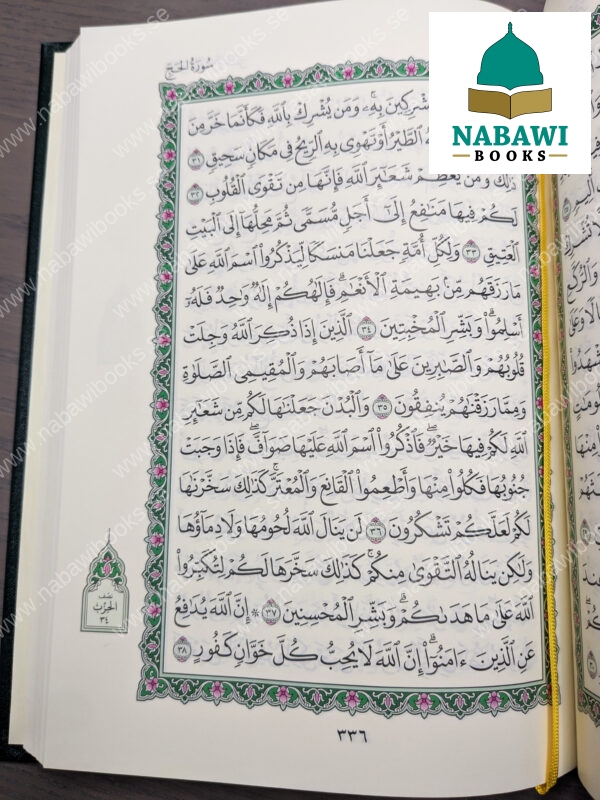 سُورَةُ الحَجِّ
NABAWI
BOOKS
بِهِۦۚ وَمَن يُشْرِكْ بِٱللَّهِ فَكَأَنَّمَا خَرَّ مِنَ
ٱلطَّيْرُ أَوْ تَهْوِى بِهِ ٱلرِّيحُ فِى مَكَانٍ سَحِيقٍ ٣١
ذَٰلِكَ وَمَن يُعَظِّمْ شَعَٰٓئِرَ ٱللَّهِ فَإِنَّهَا مِن تَقْوَى ٱلْقُلُوبِ ٣٢
لَكُمْ فِيهَا مَنَٰفِعُ إِلَىٰٓ أَجَلٍ مُّسَمًّى ثُمَّ مَحِلُّهَآ إِلَى ٱلْبَيْتِ
ٱلْعَتِيقِ ٣٣ وَلِكُلِّ أُمَّةٍ جَعَلْنَا مَنسَكًا لِّيَذْكُرُوا۟ ٱسْمَ ٱللَّهِ عَلَىٰ
مَا رَزَقَهُم مِّنۢ بَهِيمَةِ ٱلْأَنْعَٰمِۗ فَإِلَٰهُكُمْ إِلَٰهٌ وَٰحِدٌ فَلَهُۥٓ
أَسْلِمُوا۟ۗ وَبَشِّرِ ٱلْمُخْبِتِينَ ٣٤ ٱلَّذِينَ إِذَا ذُكِرَ ٱللَّهُ وَجِلَتْ
قُلُوبُهُمْ وَٱلصَّٰبِرِينَ عَلَىٰ مَآ أَصَابَهُمْ وَٱلْمُقِيمِى ٱلصَّلَوٰةِ
وَمِمَّا رَزَقْنَٰهُمْ يُنفِقُونَ ٣٥ وَٱلْبُدْنَ جَعَلْنَٰهَا لَكُم مِّن شَعَٰٓئِرِ
ٱللَّهِ لَكُمْ فِيهَا خَيْرٌۖ فَٱذْكُرُوا۟ ٱسْمَ ٱللَّهِ عَلَيْهَا صَوَآفَّۖ فَإِذَا وَجَبَتْ
جُنُوبُهَا فَكُلُوا۟ مِنْهَا وَأَطْعِمُوا۟ ٱلْقَانِعَ وَٱلْمُعْتَرَّۚ كَذَٰلِكَ سَخَّرْنَٰهَا
لَكُمْ لَعَلَّكُمْ تَشْكُرُونَ ٣٦ لَن يَنَالَ ٱللَّهَ لُحُومُهَا وَلَا دِمَآؤُهَا
وَلَٰكِن يَنَالُهُ ٱلتَّقْوَىٰ مِنكُمْۚ كَذَٰلِكَ سَخَّرَهَا لَكُمْ لِتُكَبِّرُوا۟
ٱللَّهَ عَلَىٰ مَا هَدَىٰكُمْۗ وَبَشِّرِ ٱلْمُحْسِنِينَ ٣٧ ۞ إِنَّ ٱللَّهَ يُدَٰفِعُ
عَنِ ٱلَّذِينَ ءَامَنُوٓا۟ۗ إِنَّ ٱللَّهَ لَا يُحِبُّ كُلَّ خَوَّانٍ كَفُورٍ ٣٨
نصف
الحزب
٣٤
٣٣٦
www.nabawibooks.se